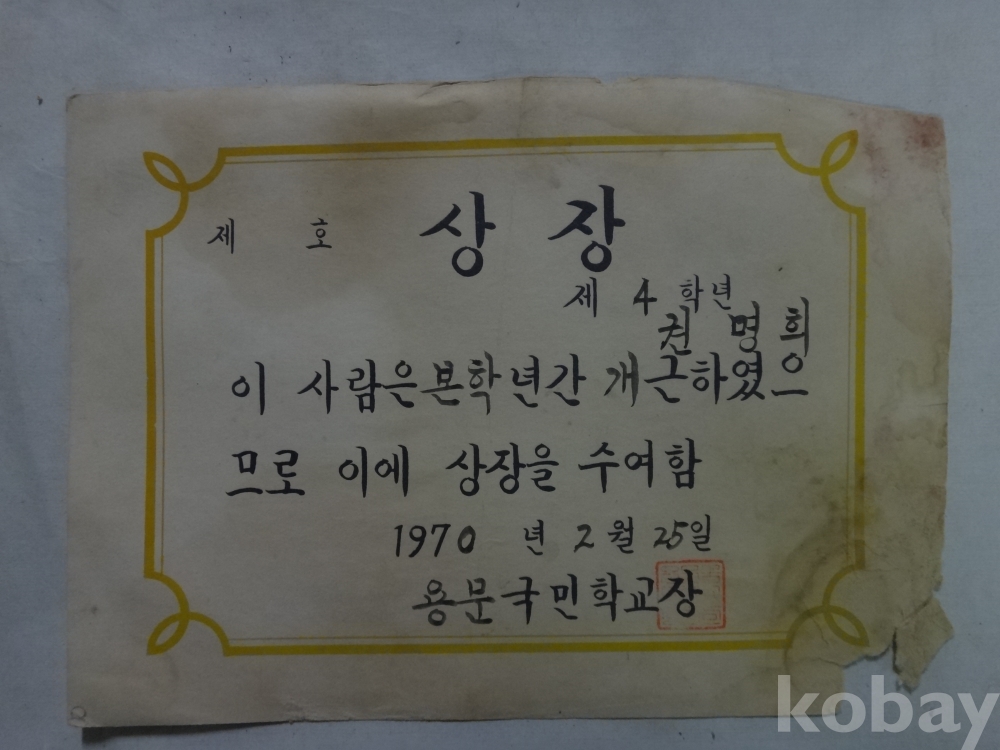 제 호 상 장
제 4 학년
권 명 희
이 사람은 본학년간 개근하였으
므로 이에 상장을 수여함
1970 년 2 월 25일
용문국민학교장
kobay